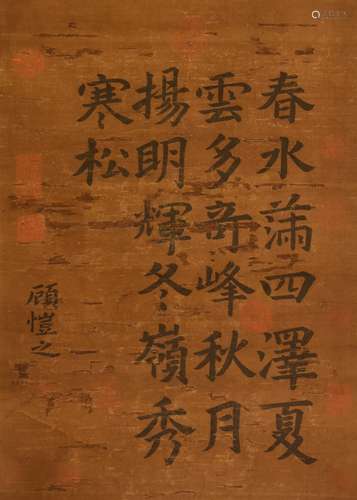 春水滿四澤夏
雲多奇峰秋月
揚明輝冬嶺秀
寒松
顧愷之